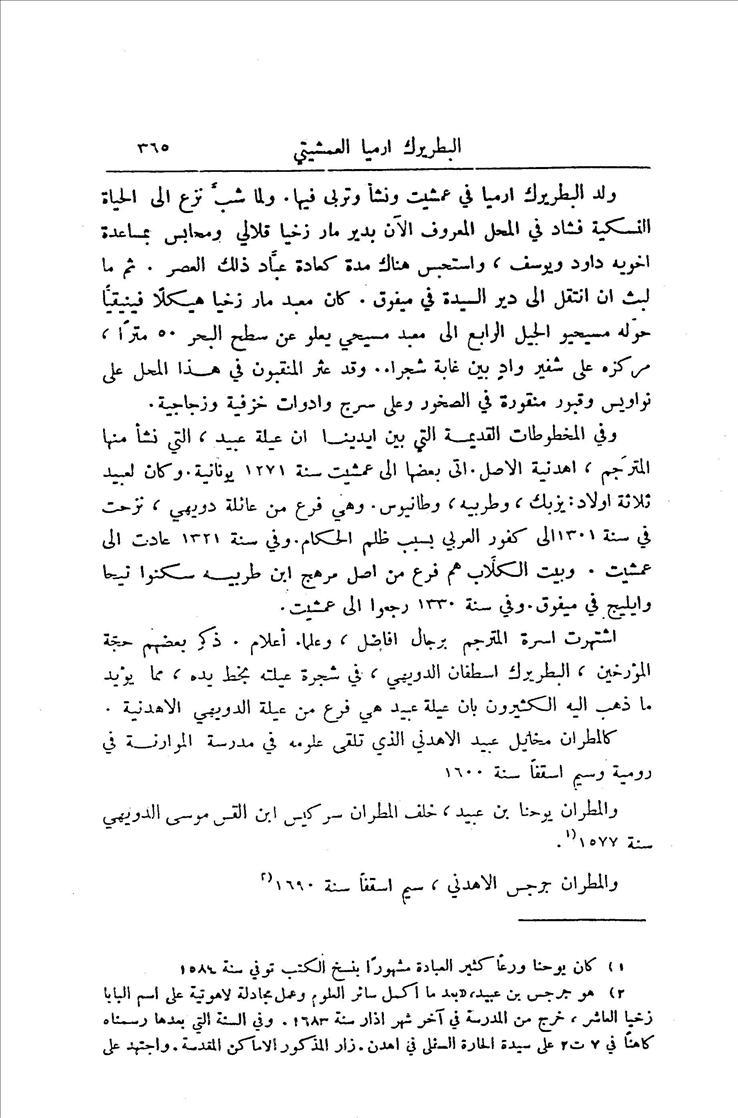 البطريرك ارميا العمشيتي ٣٦٥
ولد البطريرك ارميا في عمشيت ونشأ وتربى فيها. ولما شبَّ نزع الى الحياة
النسكية فشاد في المحل المعروف الآن بدير مار زخيا قلالي ومحابس بمساعدة
اخويه داود ويوسف ، واستحبس هناك مدة كعادة عبَّاد ذلك العصر . ثم ما
لبث ان انتقل الى دير السيدة في ميفوق . كان معبد مار زخيا هيكلًا فينيقيًّا
حوّله مسيحيو الجيل الرابع الى معبد مسيحي يعلو عن سطح البحر ٥٠ مترًا ،
مركزه على شفير وادٍ بين غابة شجراء. وقد عثر المنقبون في هذا المحل على
نواويس وقبور منقورة في الصخور وعلى سرج وادوات خزفية وزجاجية.
وفي المخطوطات القديمة التي بين ايدينا ان عيلة عبيد ، التي نشأ منها
المترجَم ، اهدنية الاصل. اتى بعضها الى عمشيت سنة ١٢٧١ يونانية. وكان لعبيد
ثلاثة اولاد: يزبك ، وطربيه ، وطانيوس. وهي فرع من عائلة دويهي ، نزحت
في سنة ١٣٠١ الى كفور العربي بسبب ظلم الحكام. وفي سنة ١٣٢١ عادت الى
عمشيت . وبيت الكلَّاب هم فرع من اصل مرهج ابن طربيه سكنوا تيحا
وايليج في ميفوق. وفي سنة ١٣٣٠ رجعوا الى عمشيت.
اشتهرت اسرة المترجم برجال افاضل ، وعلماء أعلام . ذكر بعضهم حجّة
المؤرخين ، البطريرك اسطفان الدويهي ، في شجرة عيلته بخط يده ، مما يؤيد
ما ذهب اليه الكثيرون بان عيلة عبيد هي فرع من عيلة الدويهي الاهدنية .
كالمطران مخايل عبيد الاهدني الذي تلقى علومه في مدرسة الموارنة في
رومية وسيم اسقفاً سنة ١٦٠٠
والمطران يوحنا بن عبيد ، خلف المطران سركيس ابن القس موسى الدويهي
سنة ١٥٧٧ (١.
والمطران جرجس الاهدني ، سيم اسقفاً سنة ١٦٩٠ (٢
١) كان يوحنا ورعاً كثير العبادة مشهورًا بنسخ الكتب توفي سنة ١٥٨٤
٢) هو جرجس بن عبيد، «بعد ما أكمل سائر العلوم وعمل مجادلة لاهوتية على اسم البابا
زخيا العاشر ، خرج من المدرسة في آخر شهر اذار سنة ١٦٨٣ . وفي السنة التي بعدها رسمناه
كاهناً في ٧ ت٢ على سيدة الحارة السفلى في اهدن. زار المذكور الاماكن المقدسة. واجتهد على